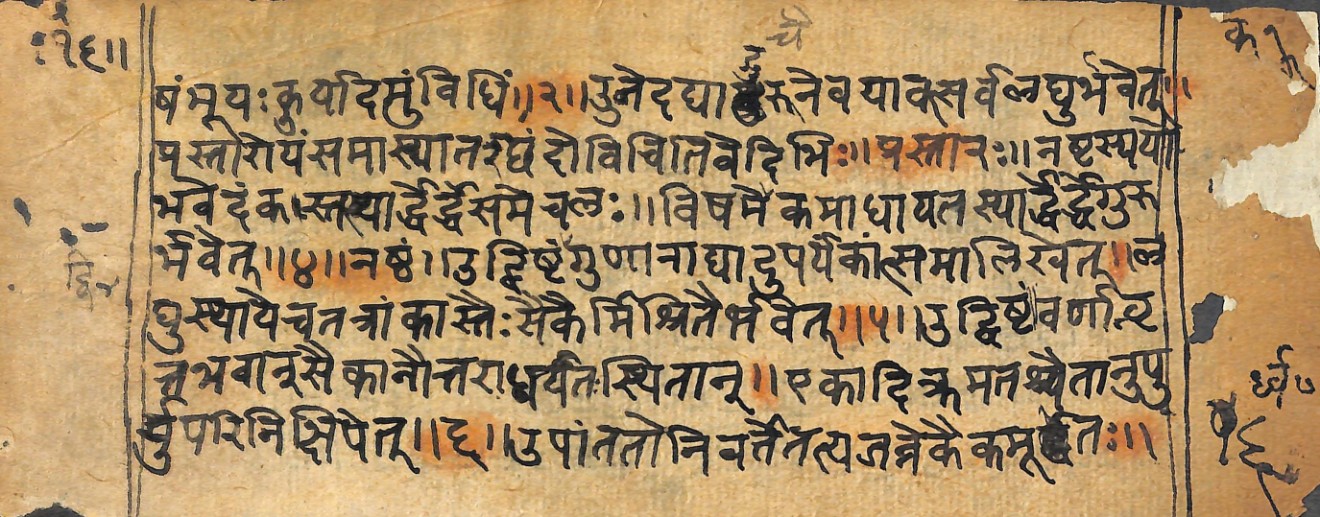 चै
ः१६॥
षं भूयः कुर्यादिमुं विधिं॥३॥उनेदद्याद्गुरूनेवयावत्सर्वलघुर्भवेत्॥
प्रस्तारोयंसमाख्यातश्छंदोविचितिवेदिभिः॥प्रस्तारः॥नष्टस्ययो
भवेदंकस्तस्यार्द्धेर्द्धेसमेचलः॥विषमैकमाधायतस्यार्द्धेर्द्धेगुरु
र्भवेत्॥४॥नष्टं॥उद्दिष्टंद्विगुणानाद्यादुपर्यंकांत्समालिखेत्॥ल
घुस्थायैचतत्रांकास्तैःसैकैर्मिश्रितैर्भवेत्॥५॥उद्दिष्टंवर्णान्वृ
त्तभवान्सैकानौत्तराधर्यतःस्थितान्॥एकादिक्रमतश्चैतानुपु
र्युपरिनिक्षिपेत्॥६॥उपांततोनिवर्तेतत्यजन्नेकैकमूर्द्धतः॥
द्वि
र्ध्व७
१६